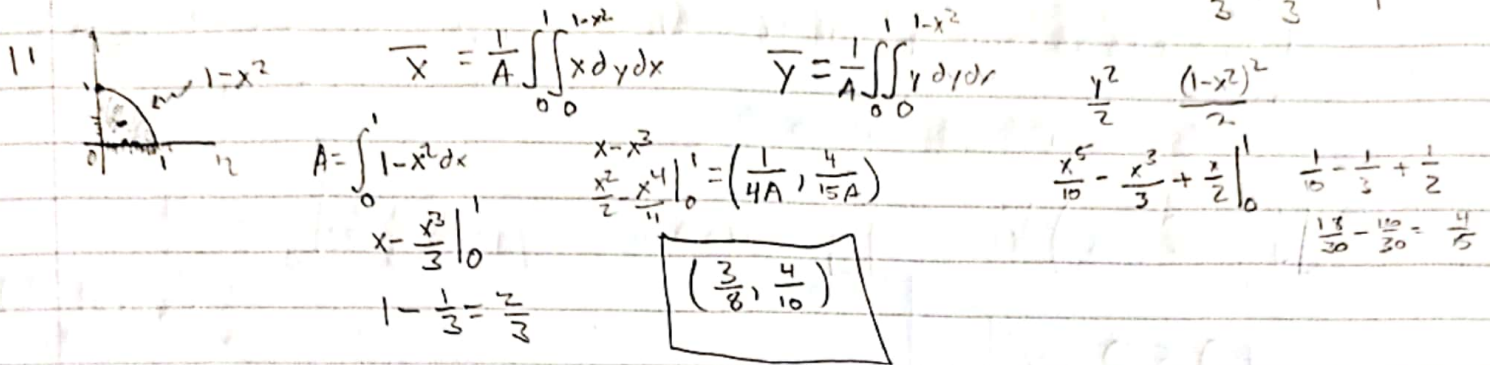 3 3
11
1-x²
x̄ = 1/A ∫₀¹∫₀^(1-x²) x dy dx
ȳ = 1/A ∫₀¹∫₀^(1-x²) y dy dx
y²/2 (1-x²)²/2
1
0 1 2
A = ∫₀¹ 1-x² dx
x-x³
x²/2 - x⁴/4 |₀¹ = (1/4A, 4/15A)
x⁵/10 - x³/3 + x/2 |₀¹ 1/10 - 1/3 + 1/2
x - x³/3 |₀¹
18/30 - 10/30 = 4/15
1 - 1/3 = 2/3
(3/8, 4/10)